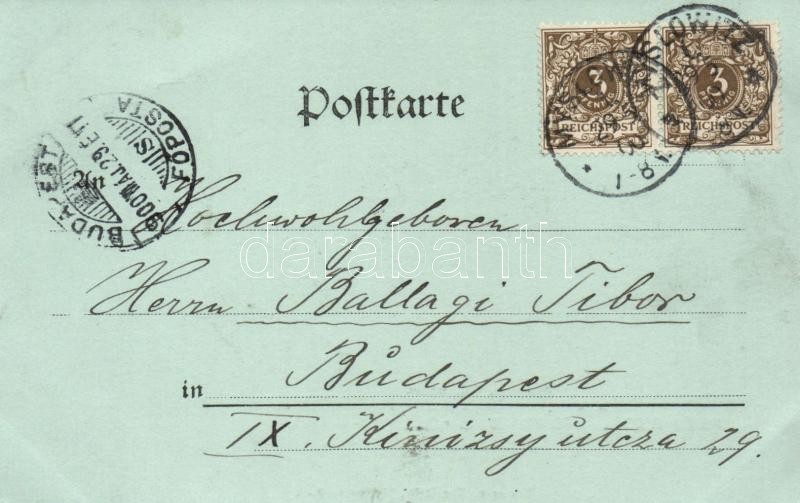 Postkarte
3
3
PFENNIG
REICHSPOST
REICHSPOST
MYSLOWITZ
1-8 V.
BUDAPEST
FŐPOSTA
900 MAJ 29
An
Hochwohlgeboren
Herrn Ballagi Tibor
in Budapest
IX. Kinizsy utcza 29.
darabanth